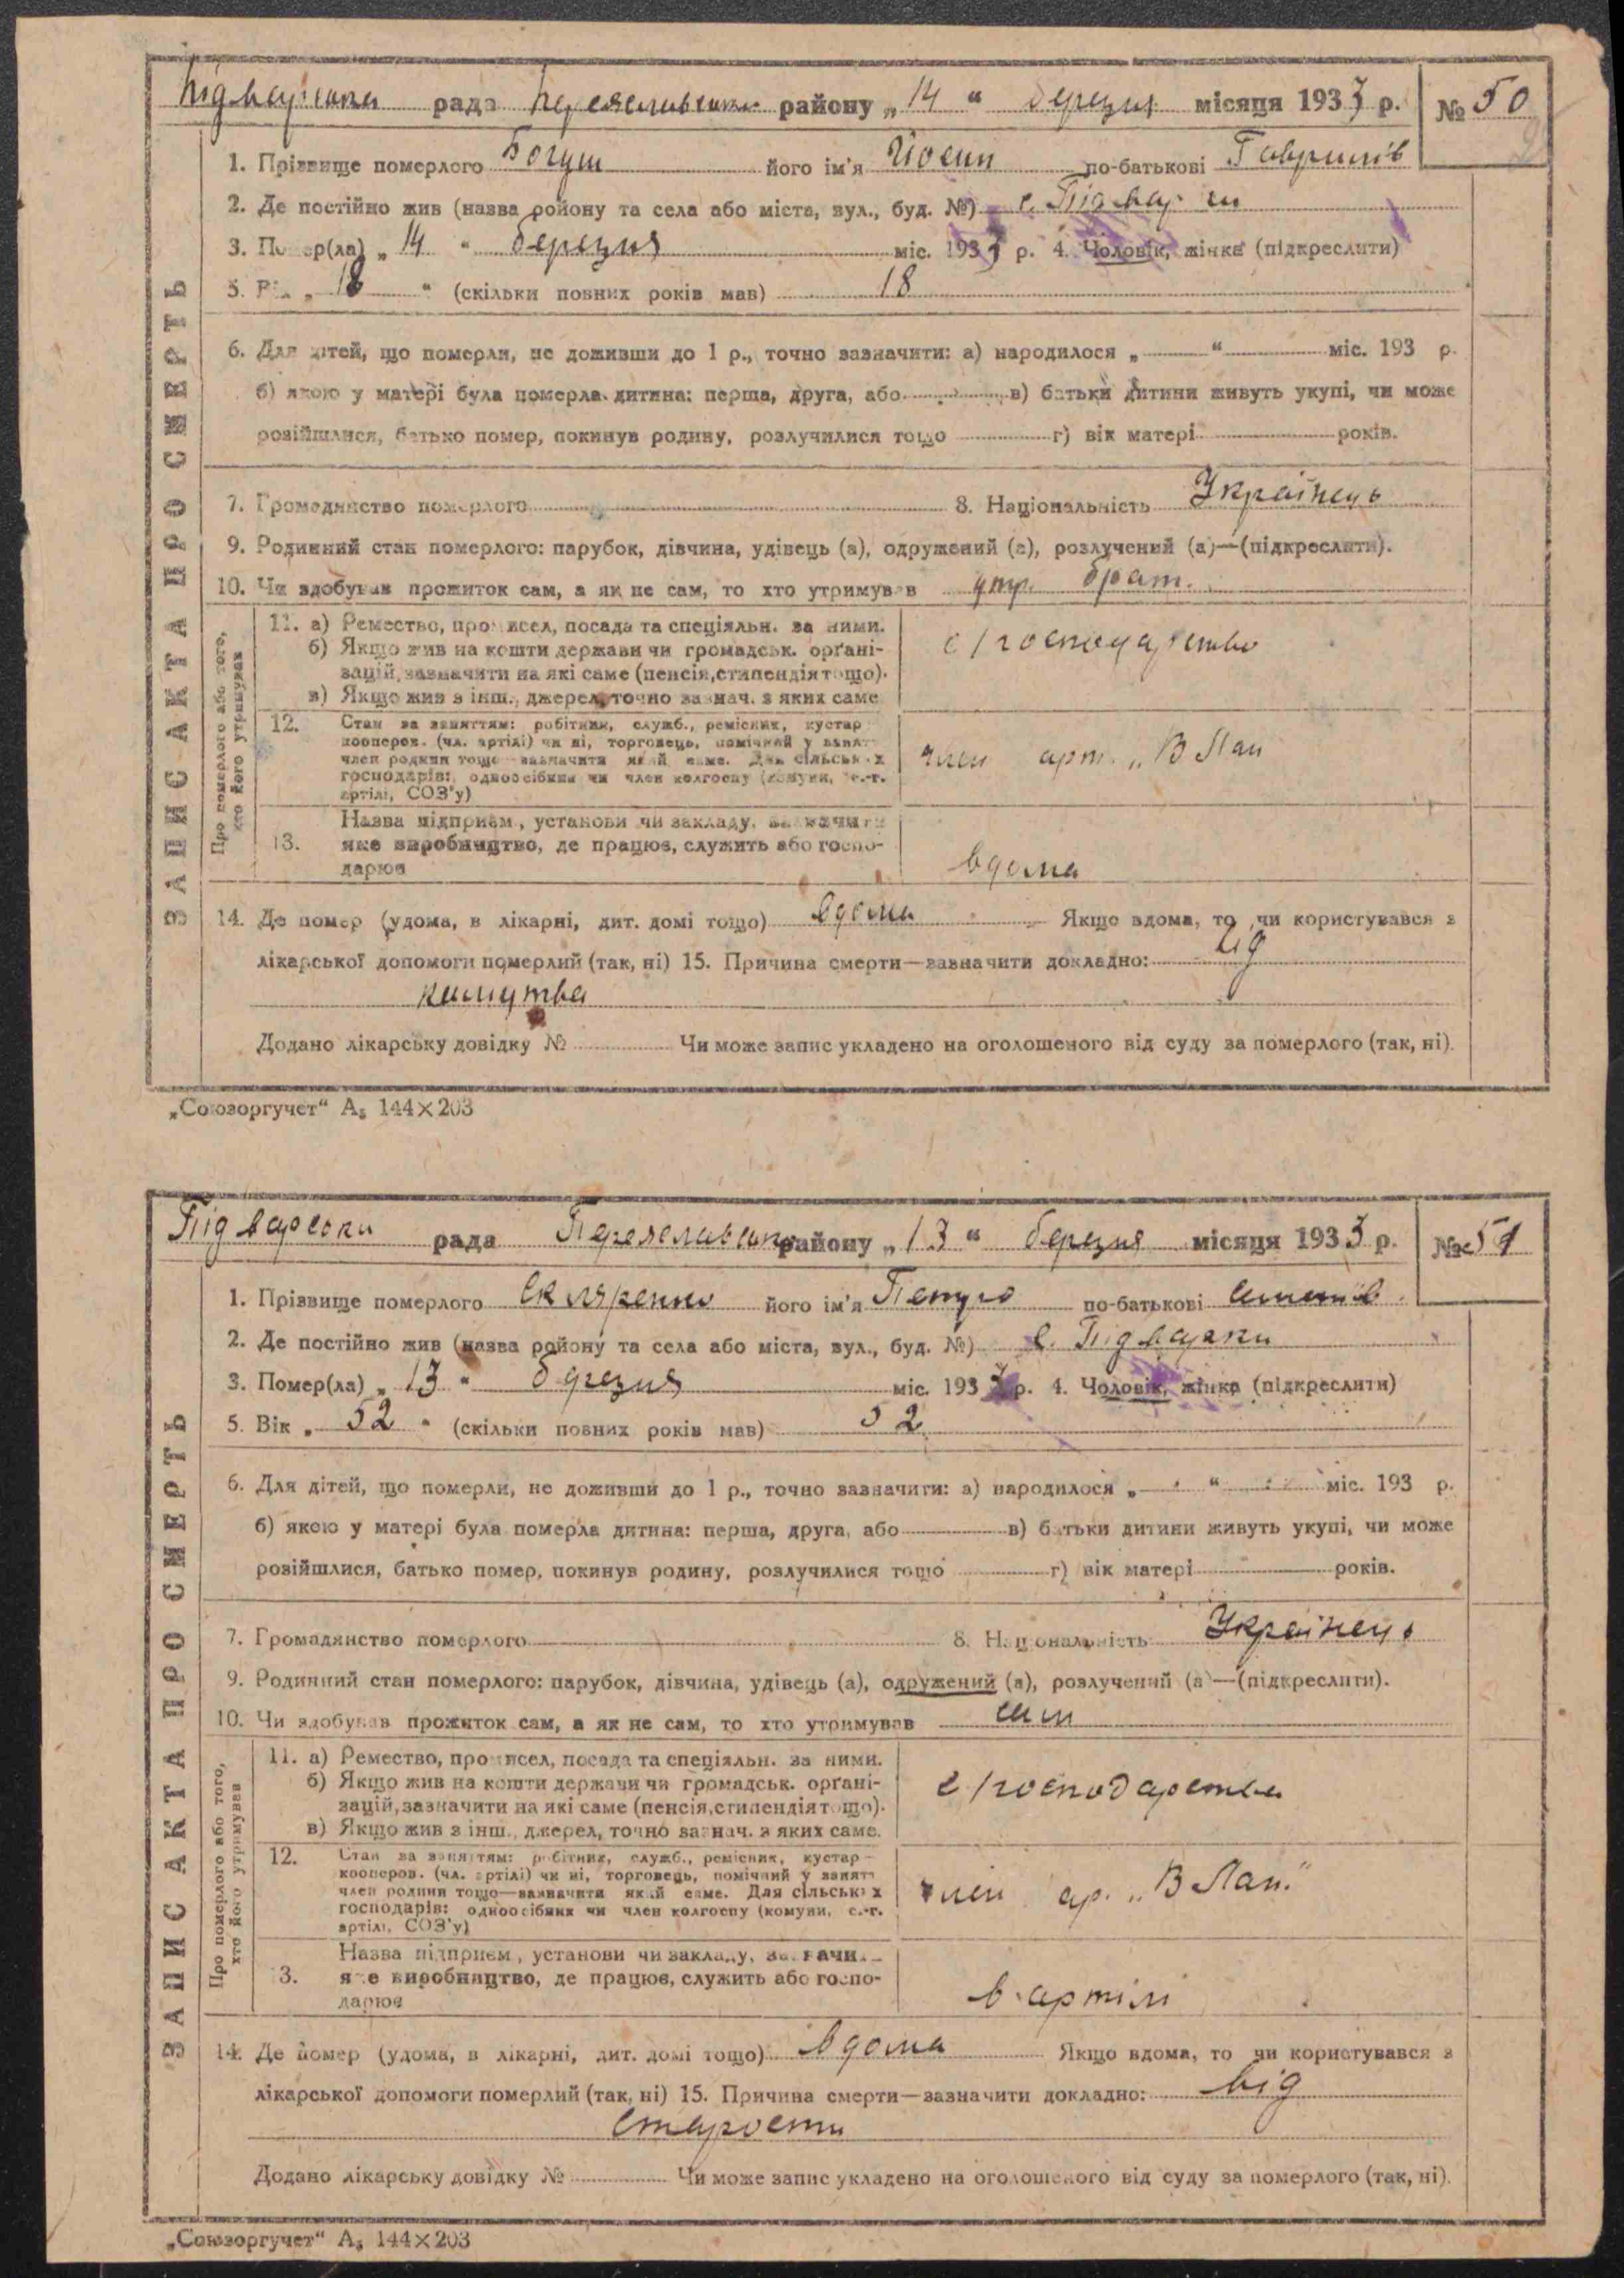 Підварська рада Переяславськ району „14“ березня місяця 1933 р. № 50
ЗАПИС АКТА ПРО СМЕРТЬ
1. Прізвище померлого Богуш його ім'я Йосип по-батькові Гаврилів
2. Де постійно жив (назва ройону та села або міста, вул., буд. №) с. Підварки
3. Помер(ла) „14“ березня міс. 1933 р. 4. Чоловік, жінка (підкреслити)
5. Вік „18“ (скільки повних років мав) 18
6. Для дітей, що померли, не доживши до 1 р., точно зазначити: а) народилося „ “ міс. 193 р.
б) якою у матері була померла дитина: перша, друга, або в) батьки дитини живуть укупі, чи може
розійшлися, батько помер, покинув родину, розлучилися тощо г) вік матері років.
7. Громадянство померлого 8. Національність Українець
9. Родинний стан померлого: парубок, дівчина, удівець (а), одружений (а), розлучений (а)—(підкреслити).
10. Чи здобував прожиток сам, а як не сам, то хто утримував утр. брат.
Про померлого або того, хто його утримував
11. а) Ремество, промисел, посада та спеціяльн. за ними.
б) Якщо жив на кошти держави чи громадськ. орґані-
зацій, зазначити на які саме (пенсія, стипендія тощо).
в) Якщо жив з інш., джерел, точно зазнач. з яких саме
с/господарство
12. Стан за заняттям: робітник, служб., ремісник, кустар
кооперов. (чл. артілі) чи ні, торговець, помічний у занятт
член родини тощо—зазначити який саме. Для сільських
господарів: одноосібник чи член колгоспу (комуни, с.-г.
артілі, СОЗ'у)
член арт. „В Лан
13. Назва підприєм., установи чи закладу, зазначити
яке виробництво, де працює, служить або госпо-
дарює
вдома
14. Де помер (удома, в лікарні, дит. домі тощо) вдома Якщо вдома, то чи користувався з
лікарської допомоги померлий (так, ні) 15. Причина смерти—зазначити докладно: від
Додано лікарську довідку № Чи може запис укладено на оголошеного від суду за померлого (так, ні).
„Союзоргучет“ А₅ 144×203
Підварська рада Переяславськ району „13“ березня місяця 1933 р. № 51
ЗАПИС АКТА ПРО СМЕРТЬ
1. Прізвище померлого Скляренко його ім'я Петро по-батькові
2. Де постійно жив (назва ройону та села або міста, вул., буд. №) с. Підварки
3. Помер(ла) „13“ березня міс. 1933 р. 4. Чоловік, жінка (підкреслити)
5. Вік „52“ (скільки повних років мав) 52
6. Для дітей, що померли, не доживши до 1 р., точно зазначити: а) народилося „ “ міс. 193 р.
б) якою у матері була померла дитина: перша, друга, або в) батьки дитини живуть укупі, чи може
розійшлися, батько помер, покинув родину, розлучилися тощо г) вік матері років.
7. Громадянство померлого 8. Національність Українець
9. Родинний стан померлого: парубок, дівчина, удівець (а), одружений (а), розлучений (а)—(підкреслити).
10. Чи здобував прожиток сам, а як не сам, то хто утримував сам
Про померлого або того, хто його утримував
11. а) Ремество, промисел, посада та спеціяльн. за ними.
б) Якщо жив на кошти держави чи громадськ. орґані-
зацій, зазначити на які саме (пенсія, стипендія тощо).
в) Якщо жив з інш., джерел, точно зазнач. з яких саме.
с/господарство
12. Стан за заняттям: робітник, служб., ремісник, кустар—
кооперов. (чл. артілі) чи ні, торговець, помічний у занятт
член родини тощо—зазначити який саме. Для сільських
господарів: одноосібник чи член колгоспу (комуни, с.-г.
артілі, СОЗ'у)
член ар. „В Лан.“
13. Назва підприєм., установи чи закладу, зазначи.
яке виробництво, де працює, служить або госпо-
дарює
в артілі
14. Де помер (удома, в лікарні, дит. домі тощо) вдома Якщо вдома, то чи користувався з
лікарської допомоги померлий (так, ні) 15. Причина смерти—зазначити докладно: від
старости
Додано лікарську довідку № Чи може запис укладено на оголошеного від суду за померлого (так, ні).
„Союзоргучет“ А₅ 144×203